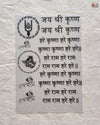 जय श्री कृष्ण
जय श्री कृष्ण
हरे कृष्णा हरे कृष्णा
कृष्णा कृष्णा हरे हरे
हरे राम हरे राम
राम राम हरे हरे
हरे कृष्णा हरे कृष्णा
कृष्णा कृष्णा हरे हरे
हरे राम हरे राम
राम राम हरे हरे